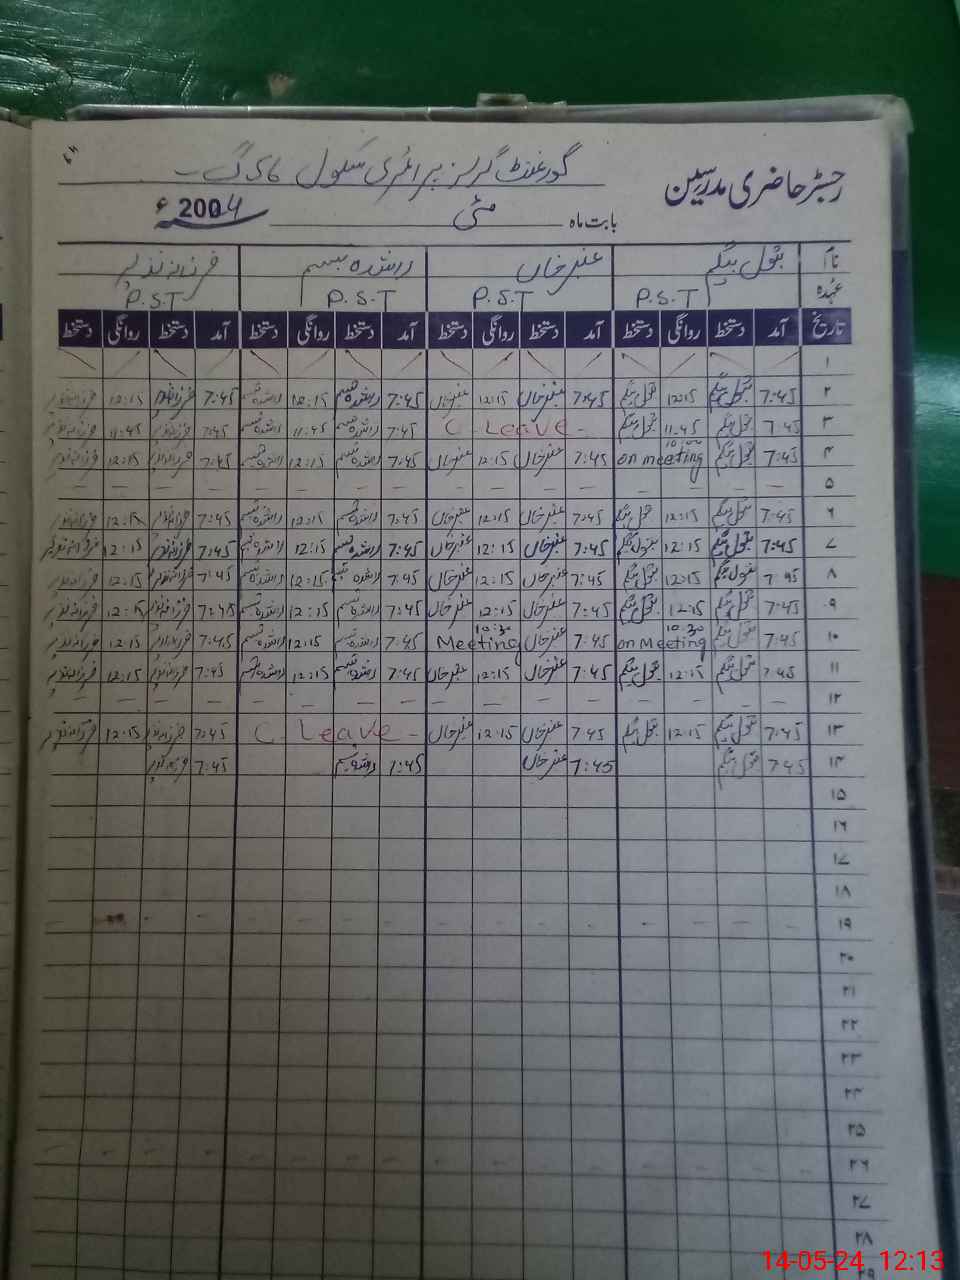 رجسٹر حاضری مدرسین
گورنمنٹ گرلز پرائمری سکول
بابت ماہ مئی 2004ء
نام بتول بیگم عنبر خان راشدہ تبسم فرزانہ نذیر
عہدہ P.S.T P.S.T P.S.T P.S.T
تاریخ آمد دستخط روانگی دستخط آمد دستخط روانگی دستخط آمد دستخط روانگی دستخط آمد دستخط روانگی دستخط
۱
۲ 7:45 بتول بیگم 12:15 بتول بیگم 7:45 عنبر خان 12:15 عنبر خان 7:45 راشدہ تبسم 12:15 راشدہ تبسم 7:45 فرزانہ نذیر 12:15 فرزانہ نذیر
۳ 7:45 بتول بیگم 11:45 بتول بیگم C. Leave - 7:45 راشدہ تبسم 11:45 راشدہ تبسم 7:45 فرزانہ نذیر 11:45 فرزانہ نذیر
۴ 7:45 بتول بیگم on meeting 7:45 عنبر خان 12:15 عنبر خان 7:45 راشدہ تبسم 12:15 راشدہ تبسم 7:45 فرزانہ نذیر 12:15 فرزانہ نذیر
۵ – – – – – – – – – – – – – – – –
۶ 7:45 بتول بیگم 12:15 بتول بیگم 7:45 عنبر خان 12:15 عنبر خان 7:45 راشدہ تبسم 12:15 راشدہ تبسم 7:45 فرزانہ نذیر 12:15 فرزانہ نذیر
۷ 7:45 بتول بیگم 12:15 بتول بیگم 7:45 عنبر خان 12:15 عنبر خان 7:45 راشدہ تبسم 12:15 راشدہ تبسم 7:45 فرزانہ نذیر 12:15 فرزانہ نذیر
۸ 7:45 بتول بیگم 12:15 بتول بیگم 7:45 عنبر خان 12:15 عنبر خان 7:45 راشدہ تبسم 12:15 راشدہ تبسم 7:45 فرزانہ نذیر 12:15 فرزانہ نذیر
۹ 7:45 بتول بیگم 12:15 بتول بیگم 7:45 عنبر خان 12:15 عنبر خان 7:45 راشدہ تبسم 12:15 راشدہ تبسم 7:45 فرزانہ نذیر 12:15 فرزانہ نذیر
۱۰ 7:45 بتول بیگم 10:30 on Meeting 7:45 عنبر خان 10:30 Meeting 7:45 راشدہ تبسم 12:15 راشدہ تبسم 7:45 فرزانہ نذیر 12:15 فرزانہ نذیر
۱۱ 7:45 بتول بیگم 12:15 بتول بیگم 7:45 عنبر خان 12:15 عنبر خان 7:45 راشدہ تبسم 12:15 راشدہ تبسم 7:45 فرزانہ نذیر 12:15 فرزانہ نذیر
۱۲ – – – – – – – – – – – – – – – –
۱۳ 7:45 بتول بیگم 12:15 بتول بیگم 7:45 عنبر خان 12:15 عنبر خان C. Leave - 7:45 فرزانہ نذیر 12:15 فرزانہ نذیر
۱۴ 7:45 بتول بیگم 7:45 عنبر خان 7:45 راشدہ تبسم 7:45 فرزانہ نذیر
۱۵
۱۶
۱۷
۱۸
۱۹ – – – – – – – – – – – – – – –
۲۰
۲۱
۲۲
۲۳
۲۴
۲۵
۲۶ – – – – – – – – – – – – – – – –
۲۷
۲۸
۲۹
14-05-24 12:13